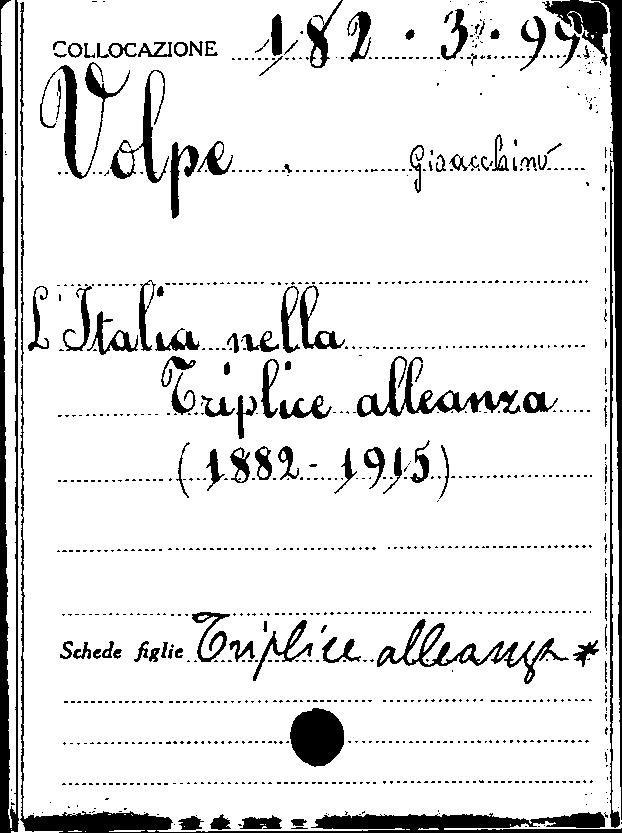 COLLOCAZIONE 182.3.99
Volpe. Gioacchino
L'Italia nella
Triplice alleanza
(1882-1915)
Schede figlie Triplice alleanza *